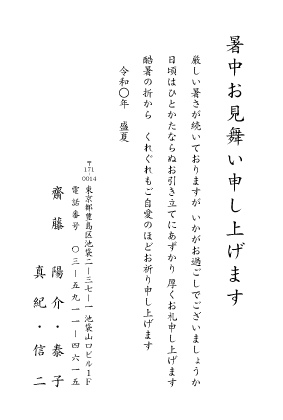 暑中お見舞い申し上げます
厳しい暑さが続いておりますが いかがお過ごしでございましょうか
日頃はひとかたならぬお引き立てにあずかり 厚くお礼申し上げます
酷暑の折から くれぐれもご自愛のほどお祈り申し上げます
令和〇年 盛夏
〒171-0014
東京都豊島区池袋二ー三七ー一 池袋山口ビル1F
電話番号 〇三ー五九一一ー四六一五
齋藤 陽介・泰子
真紀・信二